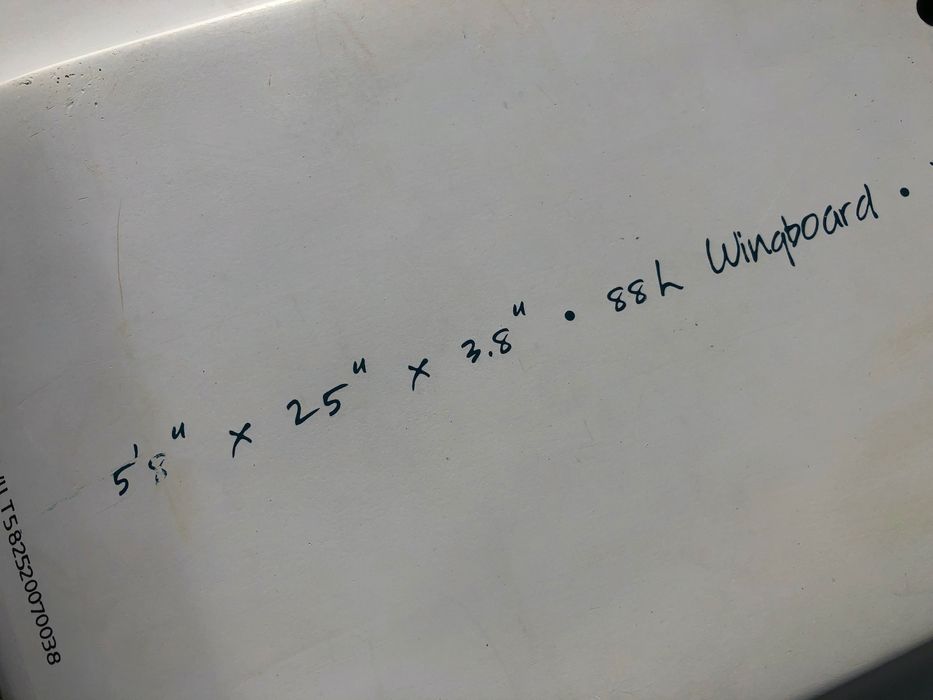 5'8" x 25" x 3.8" • 88L Wingboard •
T582520070038